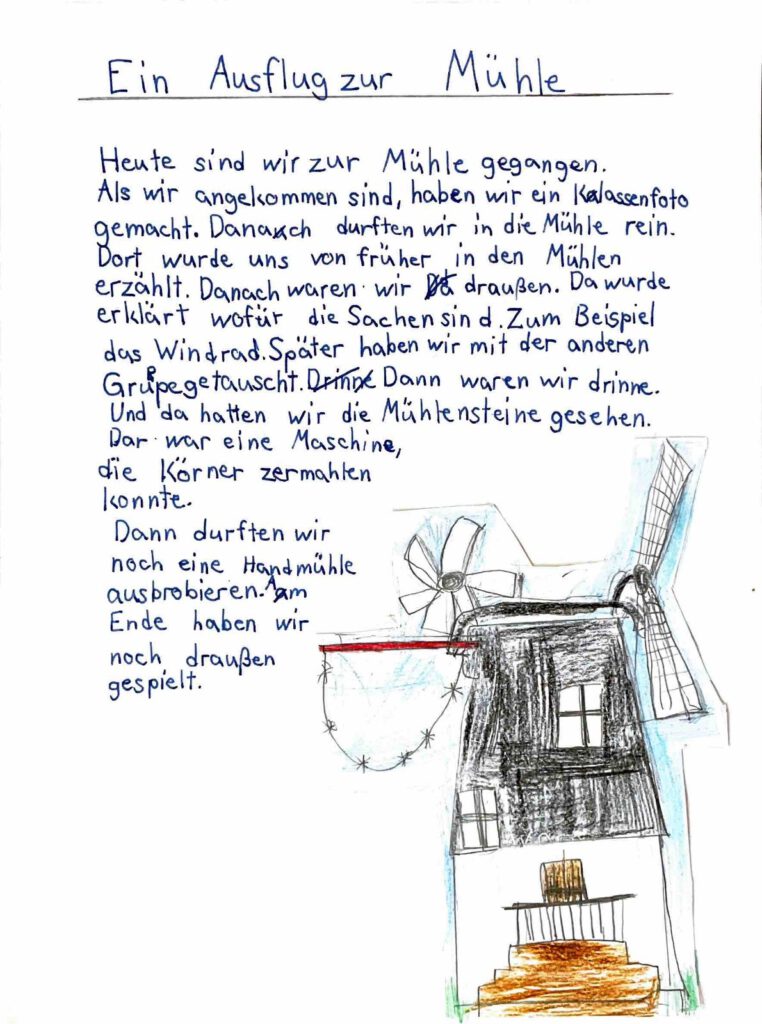 Ein Ausflug zur Mühle
Heute sind wir zur Mühle gegangen.
Als wir angekommen sind, haben wir ein Klassenfoto
gemacht. Danach durften wir in die Mühle rein.
Dort wurde uns von früher in den Mühlen
erzählt. Danach waren wir draußen. Da wurde
erklärt wofür die Sachen sind. Zum Beispiel
das Windrad. Später haben wir mit der anderen
Gruppe getauscht. Drinne Dann waren wir drinne.
Und da hatten wir die Mühlensteine gesehen.
Dar war eine Maschine,
die Körner zermahlen
konnte.
Dann durften wir
noch eine Handmühle
ausbrobieren. Am
Ende haben wir
noch draußen
gespielt.